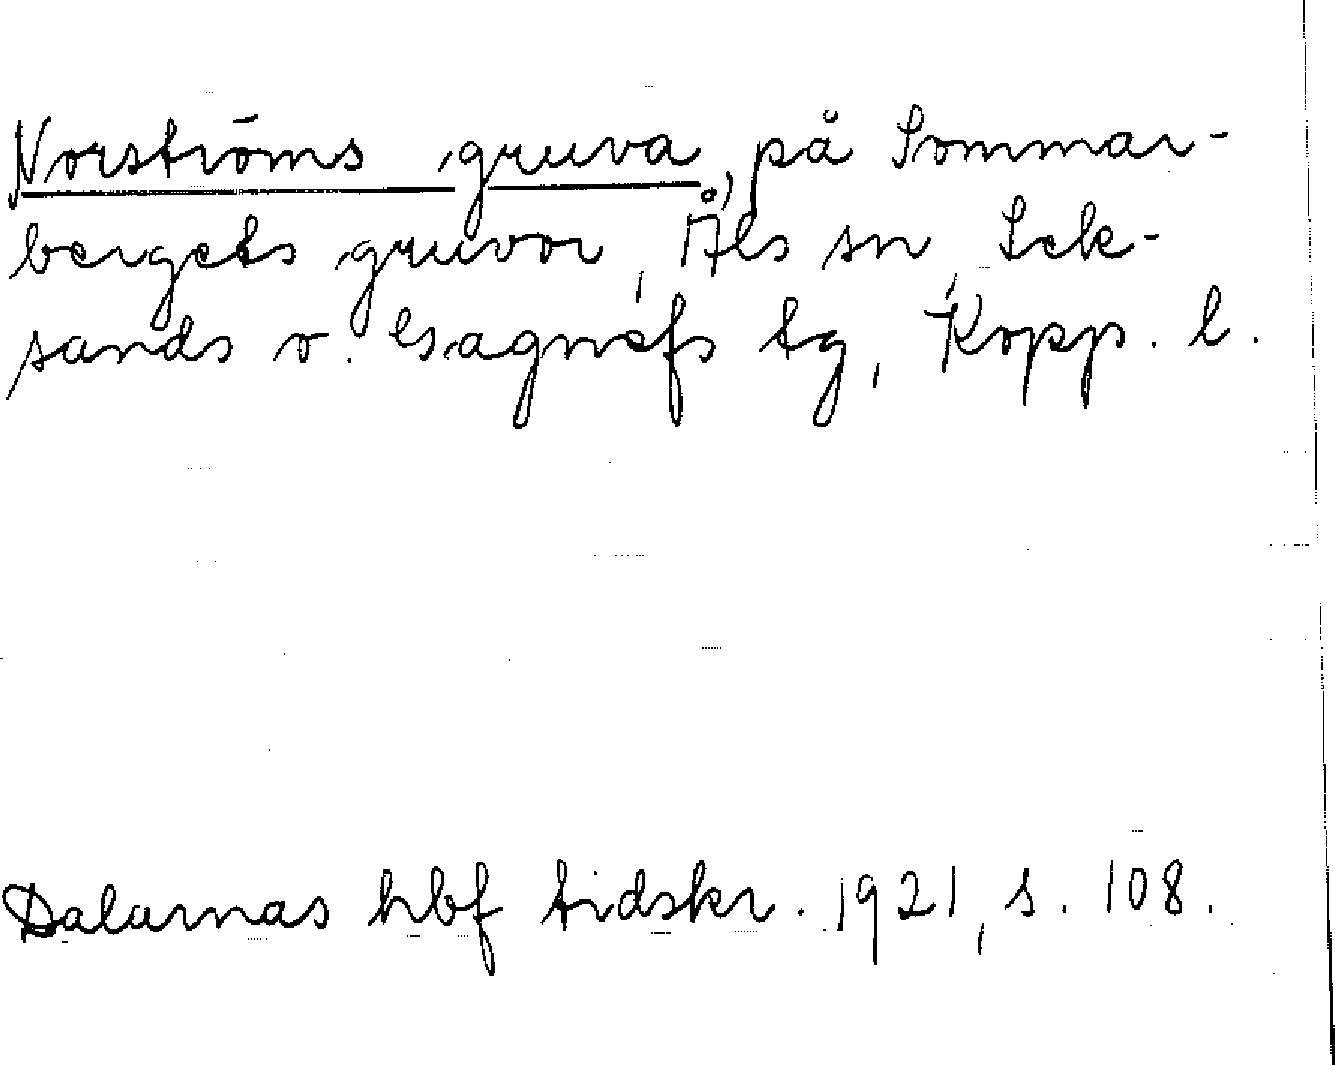 Norströms gruva, på Sommar-
bergets gruvor, Åls sn, Lek-
sands o. Gagnefs tg, Kopp. l.
Dalarnas hbf tidskr. 1921, s. 108.